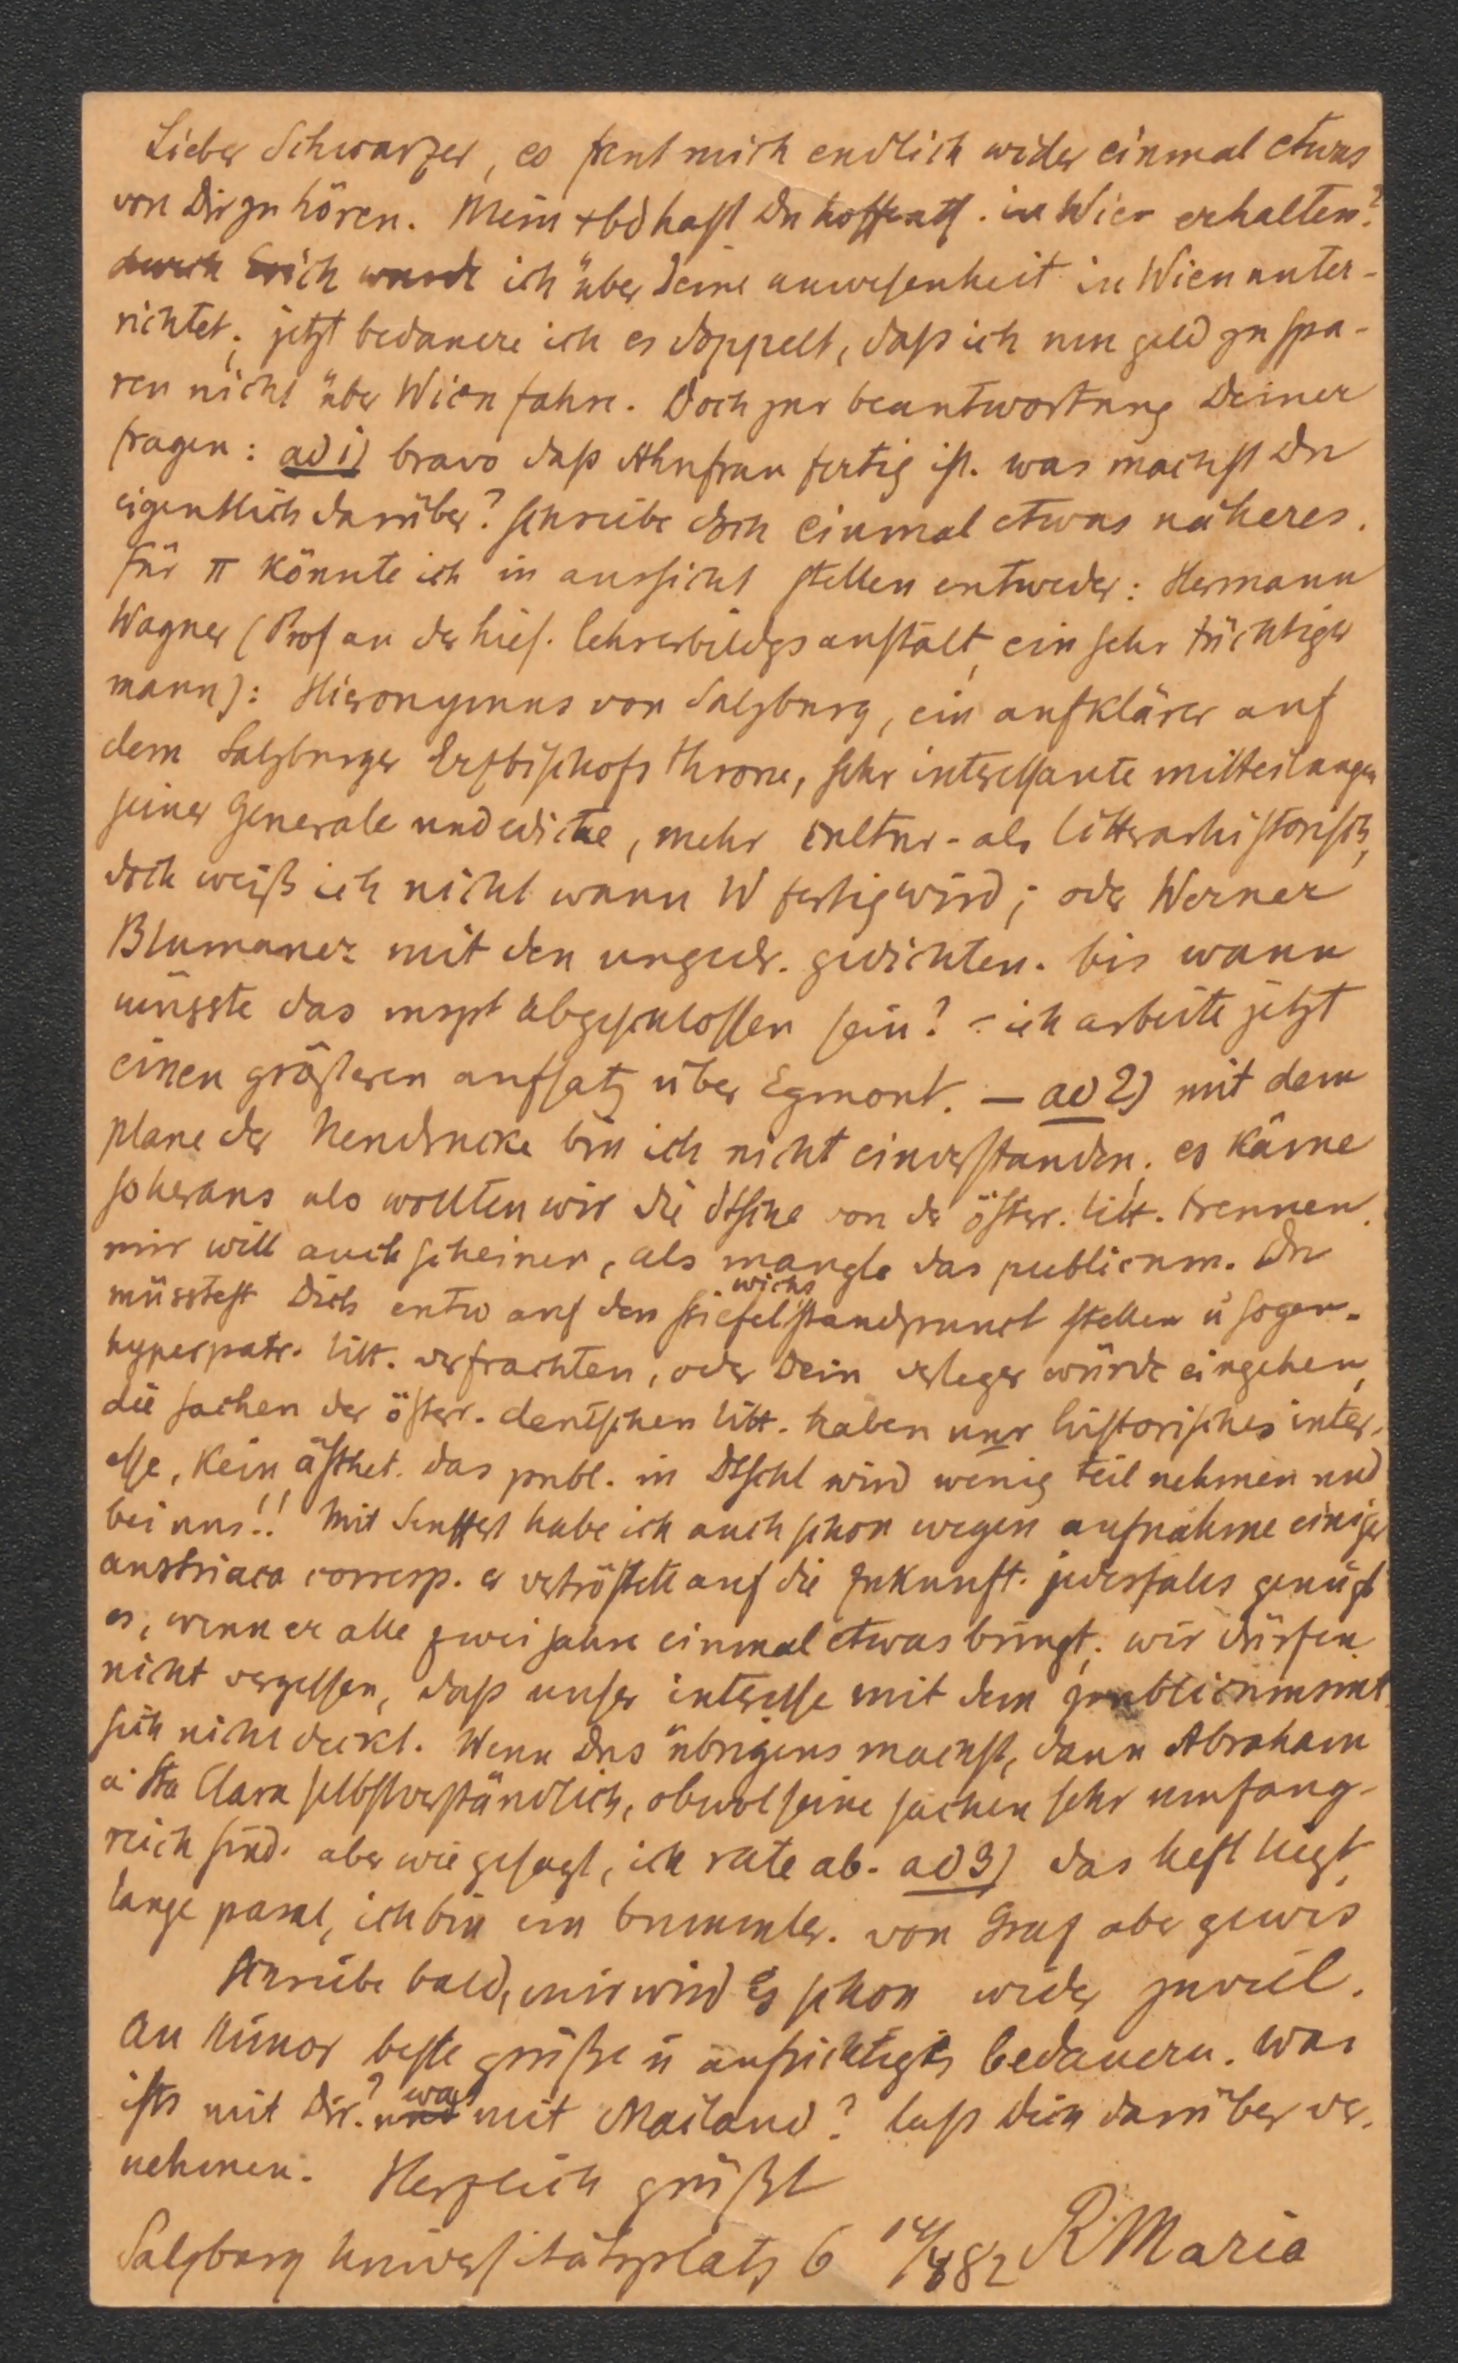 Lieber Schwarzer, es freut mich endlich wider einmal etwas
von Dir zu hören. Mein +bd hast Du hoffentl. in Wien erhalten?
durch Erich wurde ich über Deine anwesenheit in Wien unter-
richtet; jetzt bedauere ich es doppelt, daß ich um geld zu spa-
ren nicht über Wien fahre. Doch zur beantwortung Deiner
fragen: ad 1) bravo daß Ahnfrau fertig ist. was machst Du
eigentlich darüber? schreibe doch einmal etwas näheres.
für π könnte ich in aussicht stellen entweder: Hermann
Wagner (Prof an der hies. lehrerbildgsanstalt, ein sehr tüchtiger
mann): Hieronymus von Salzburg, ein aufklärer auf
dem Salzburger Erzbischofs throne, sehr interessante mitteilungen
seiner Generale und edicte, mehr cultur- als litterarhistorisch,
doch weiß ich nicht wann W fertig wird; oder Werner
Blumauer mit den ungedr. gedichten. bis wann
müsste das mspt abgeschlossen sein? – ich arbeite jetzt
einen größeren aufsatz über Egmont. — ad 2) mit dem
plane der Neudrucke bin ich nicht einverstanden; es käme
so heraus als wollten wir die dtsche von der österr. litt. trennen.
mir will auch scheinen, als mangle das publicum. Du
müsstest Dich entw auf den stiefelwichsstandpunct stellen u sogen.
hyperpatr. litt. verfrachten, oder Dein verleger würde eingehen,
die sachen der österr. deutschen litt. haben nur historisches inter-
esse, kein ästhet. das publ. in Dtschl wird wenig teil nehmen und
bei uns!! Mit Seuffert habe ich auch schon wegen aufnahme einiger
austriaca corresp. er vertröstete auf die zukunft. jedesfalls genügt
es, wenn er alle zwei jahre einmal etwas bringt; wir dürfen
nicht vergessen, daß unser interesse mit dem publicum
sich nicht deckt. Wenn Dus übrigens machst, dann Abraham
a Sta Clara selbstverständlich, obwol seine sachen sehr umfang-
reich sind. aber wie gesagt, ich rate ab. ad 3) das heft liegt
lange parat, ich bin ein bummler. von Graz aber gewis
Schreibe bald, mir wird es schon wider zuviel.
An Minor beste grüße u aufrichtiges bedauern. Was
ists mit Dir? und was mit Mailand? laß Dich darüber ver-
nehmen. Herzlich grüßt
Salzburg Universitätsplatz 6 14/4 82 RMaria